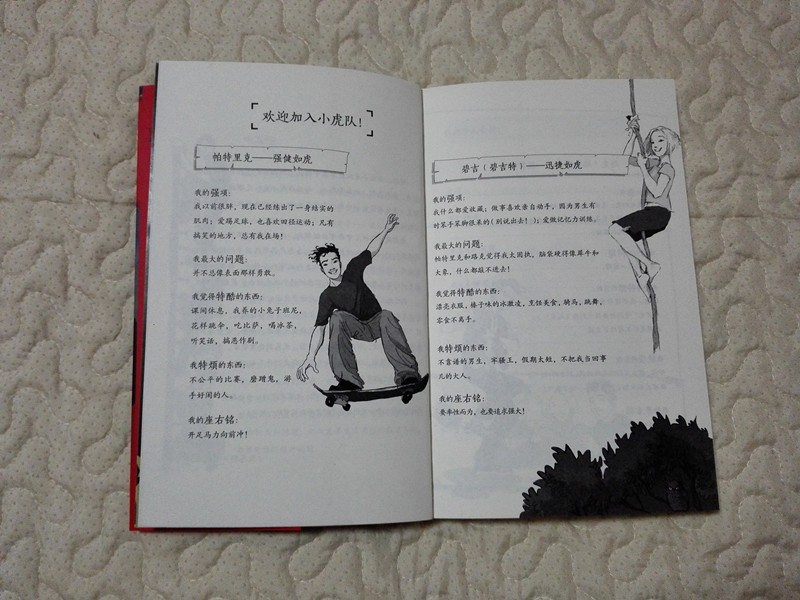 欢迎加入小虎队！
帕特里克——强健如虎
我的强项：
我以前很胖，现在已经练出了一身结实的
肌肉；爱踢足球，也喜欢田径运动；凡有
搞笑的地方，总有我在场！
我最大的问题：
并不总像表面那样勇敢。
我觉得特酷的东西：
课间休息，我养的小兔子班尼，
花样跳伞，吃比萨，喝冰茶，
听笑话，搞恶作剧。
我特烦的东西：
不公平的比赛，磨蹭鬼，游
手好闲的人。
我的座右铭：
开足马力向前冲！
碧吉（碧吉特）——迅捷如虎
我的强项：
我什么都爱收藏；做事喜欢亲自动手，因为男生有
时笨手笨脚很呆的（别说出去！）；爱做记忆力训练。
我最大的问题：
帕特里克和路克觉得我太固执，脑袋硬得像犀牛和
大象，什么都敲不进去！
我觉得特酷的东西：
漂亮衣服，榛子味的冰激凌，烹饪美食，骑马，跳舞，
零食不离手。
我特烦的东西：
不靠谱的男生，牢骚王，假期太短，不把我当回事
儿的大人。
我的座右铭：
要率性而为，也要追求强大！